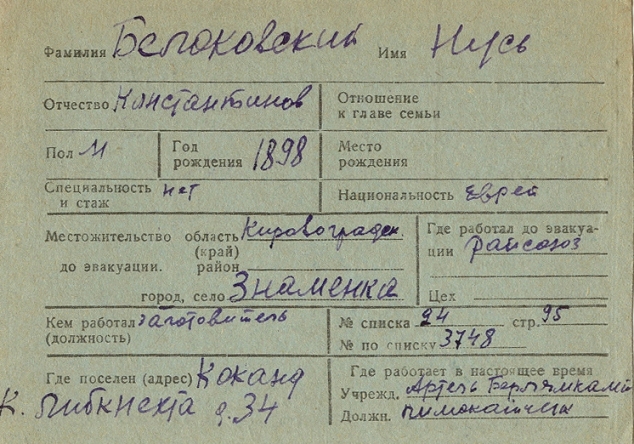 Фамилия Белоковский Имя Нусь
Отчество Константинов Отношение к главе семьи
Пол М Год рождения 1898 Место рождения
Специальность и стаж нет Национальность Еврей
Местожительство до эвакуации. область (край) Кировоградск.
район
город, село Знаменка
Где работал до эвакуации райсоюз
Цех
Кем работал (должность) заготовитель
№ списка 24 стр. 95
№ по списку 3748
Где поселен (адрес) Коканд
К. Либкнехта д. 34
Где работает в настоящее время
Учрежд. Артель
Должн. пимокатчик